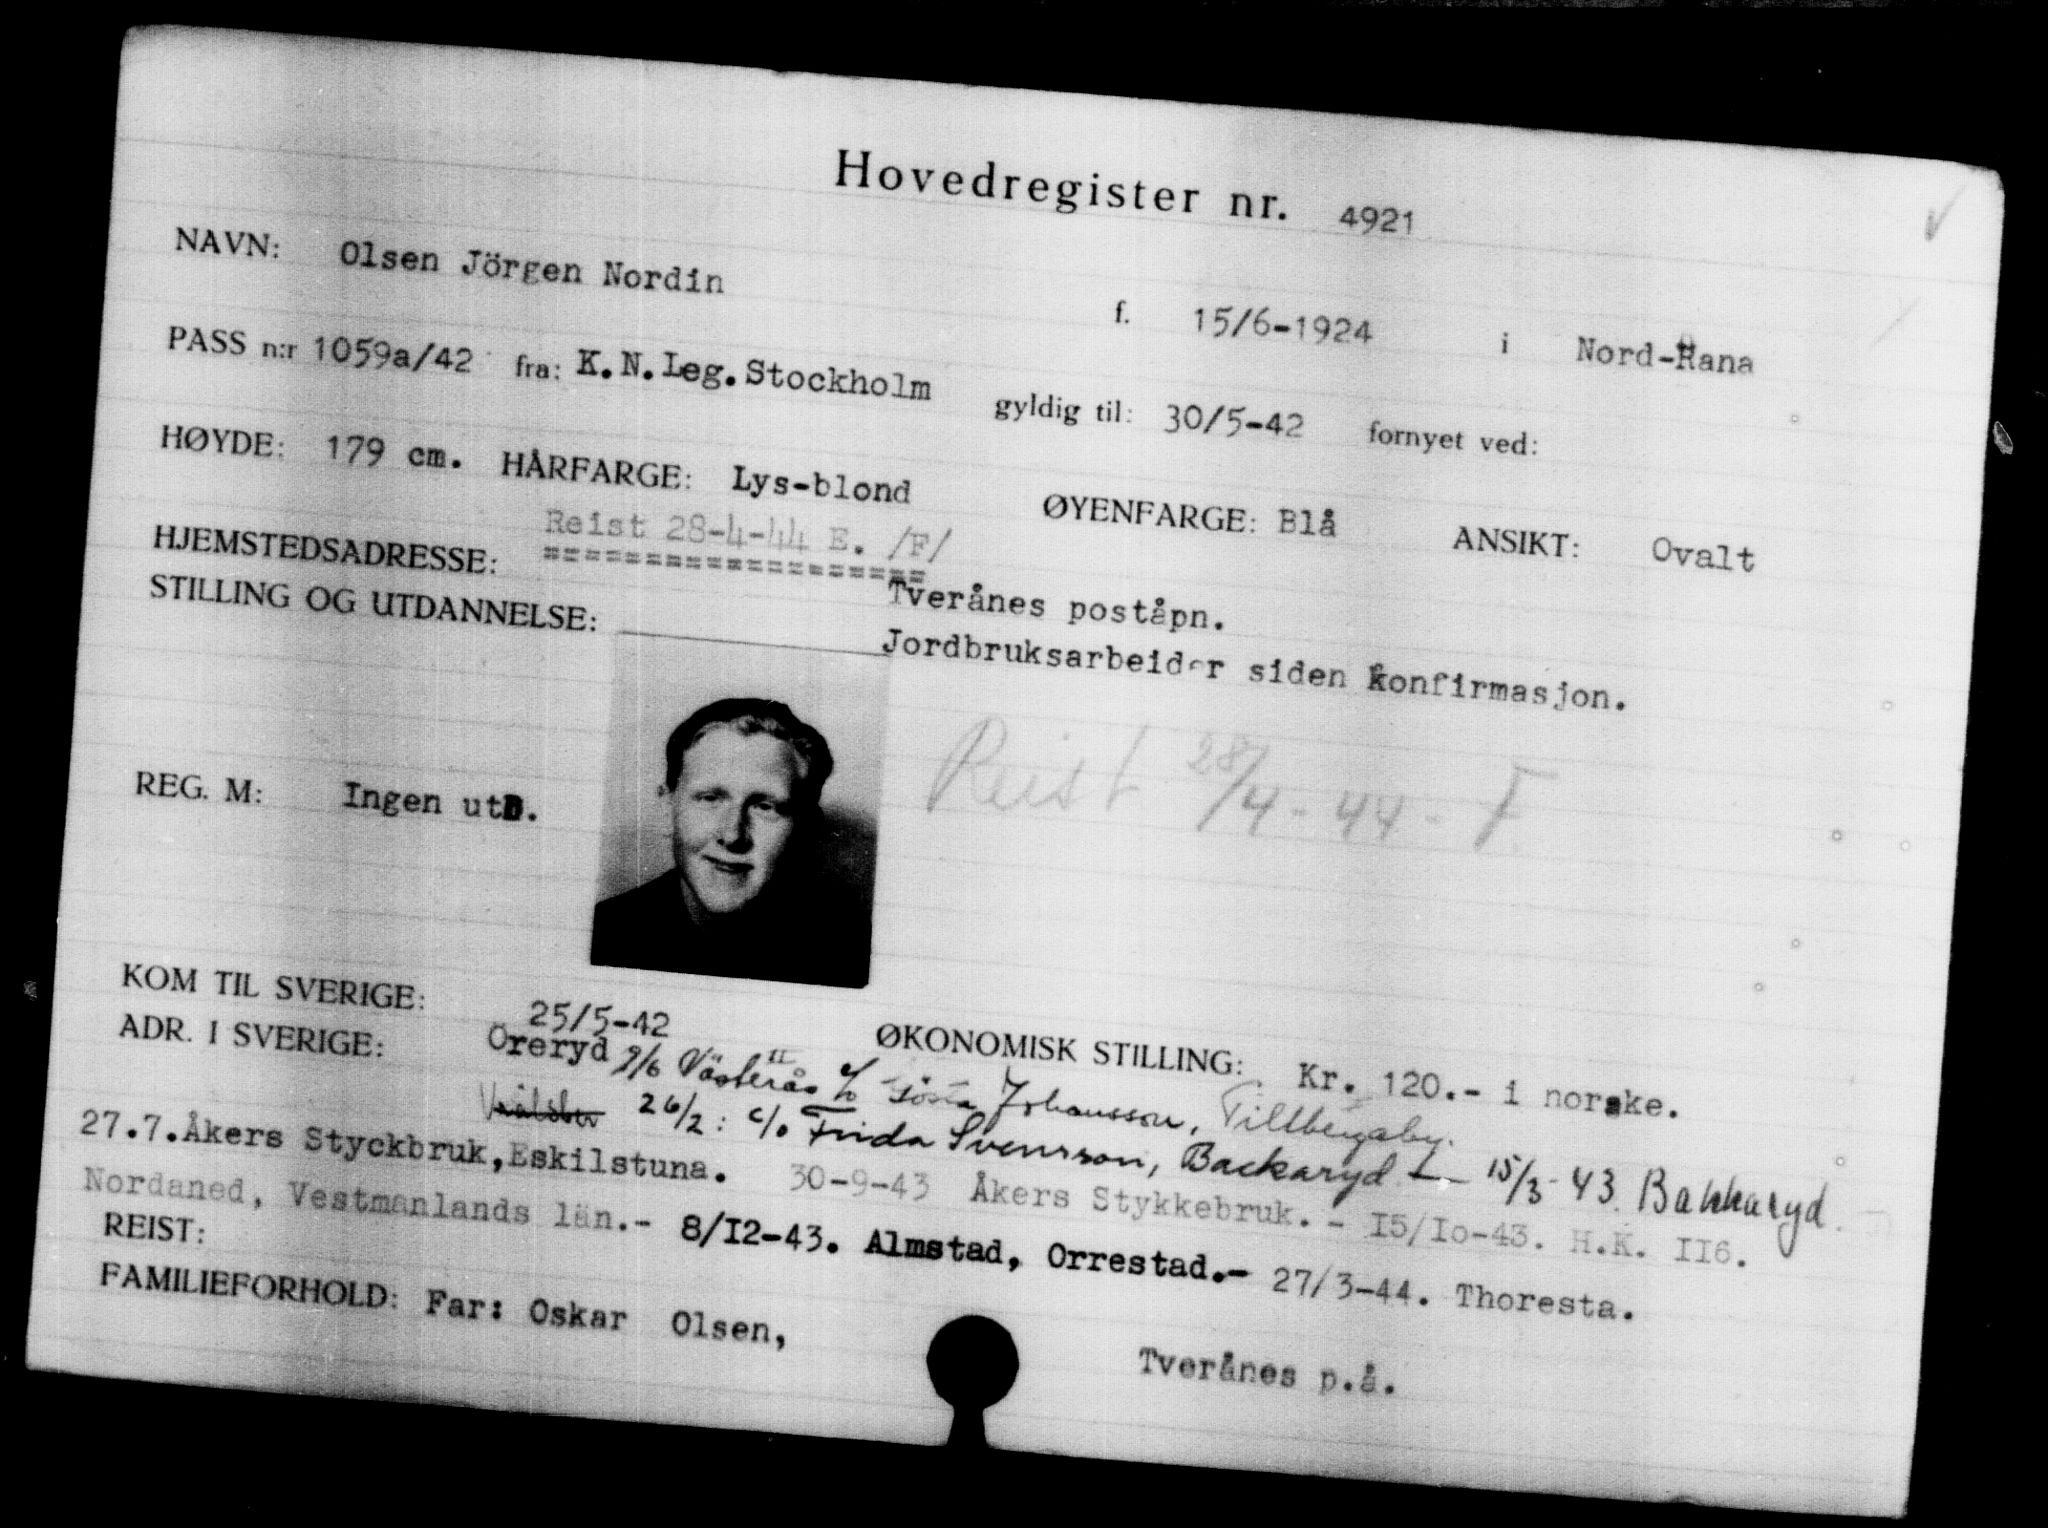 Hovedregister nr. 4921
NAVN: Olsen Jörgen Nordin f. 15/6-1924 i Nord-Rana
PASS n:r 1059a/42 fra: K.N.Leg.Stockholm gyldig til: 30/5-42 fornyet ved:
HØYDE: 179 cm. HÅRFARGE: Lys-blond ØYENFARGE: Blå ANSIKT: Ovalt
Reist 28-4-44 E. /F/
==================
HJEMSTEDSADRESSE: Tverånes poståpn.
STILLING OG UTDANNELSE: Jordbruksarbeider siden konfirmasjon.
Reist 28/4-44-F
REG. M: Ingen utD.
KOM TIL SVERIGE: 25/5-42 ØKONOMISK STILLING: Kr. 120.- i norske.
ADR. I SVERIGE: Öreryd 9/6 Västerås II c/o Gösta Johansson, Tillbergaby.
26/2: c/o Frida Svensson, Backaryd - 15/3-43. Bakkaryd.
27.7.Åkers Styckbruk,Eskilstuna. 30-9-43 Åkers Stykkebruk.- I5/Io-43. H.K. II6.
Nordaned, Vestmanlands län.- 8/I2-43. Almstad, Orrestad.- 27/3-44. Thoresta.
REIST:
FAMILIEFORHOLD: Far: Oskar Olsen, Tverånes p.å.